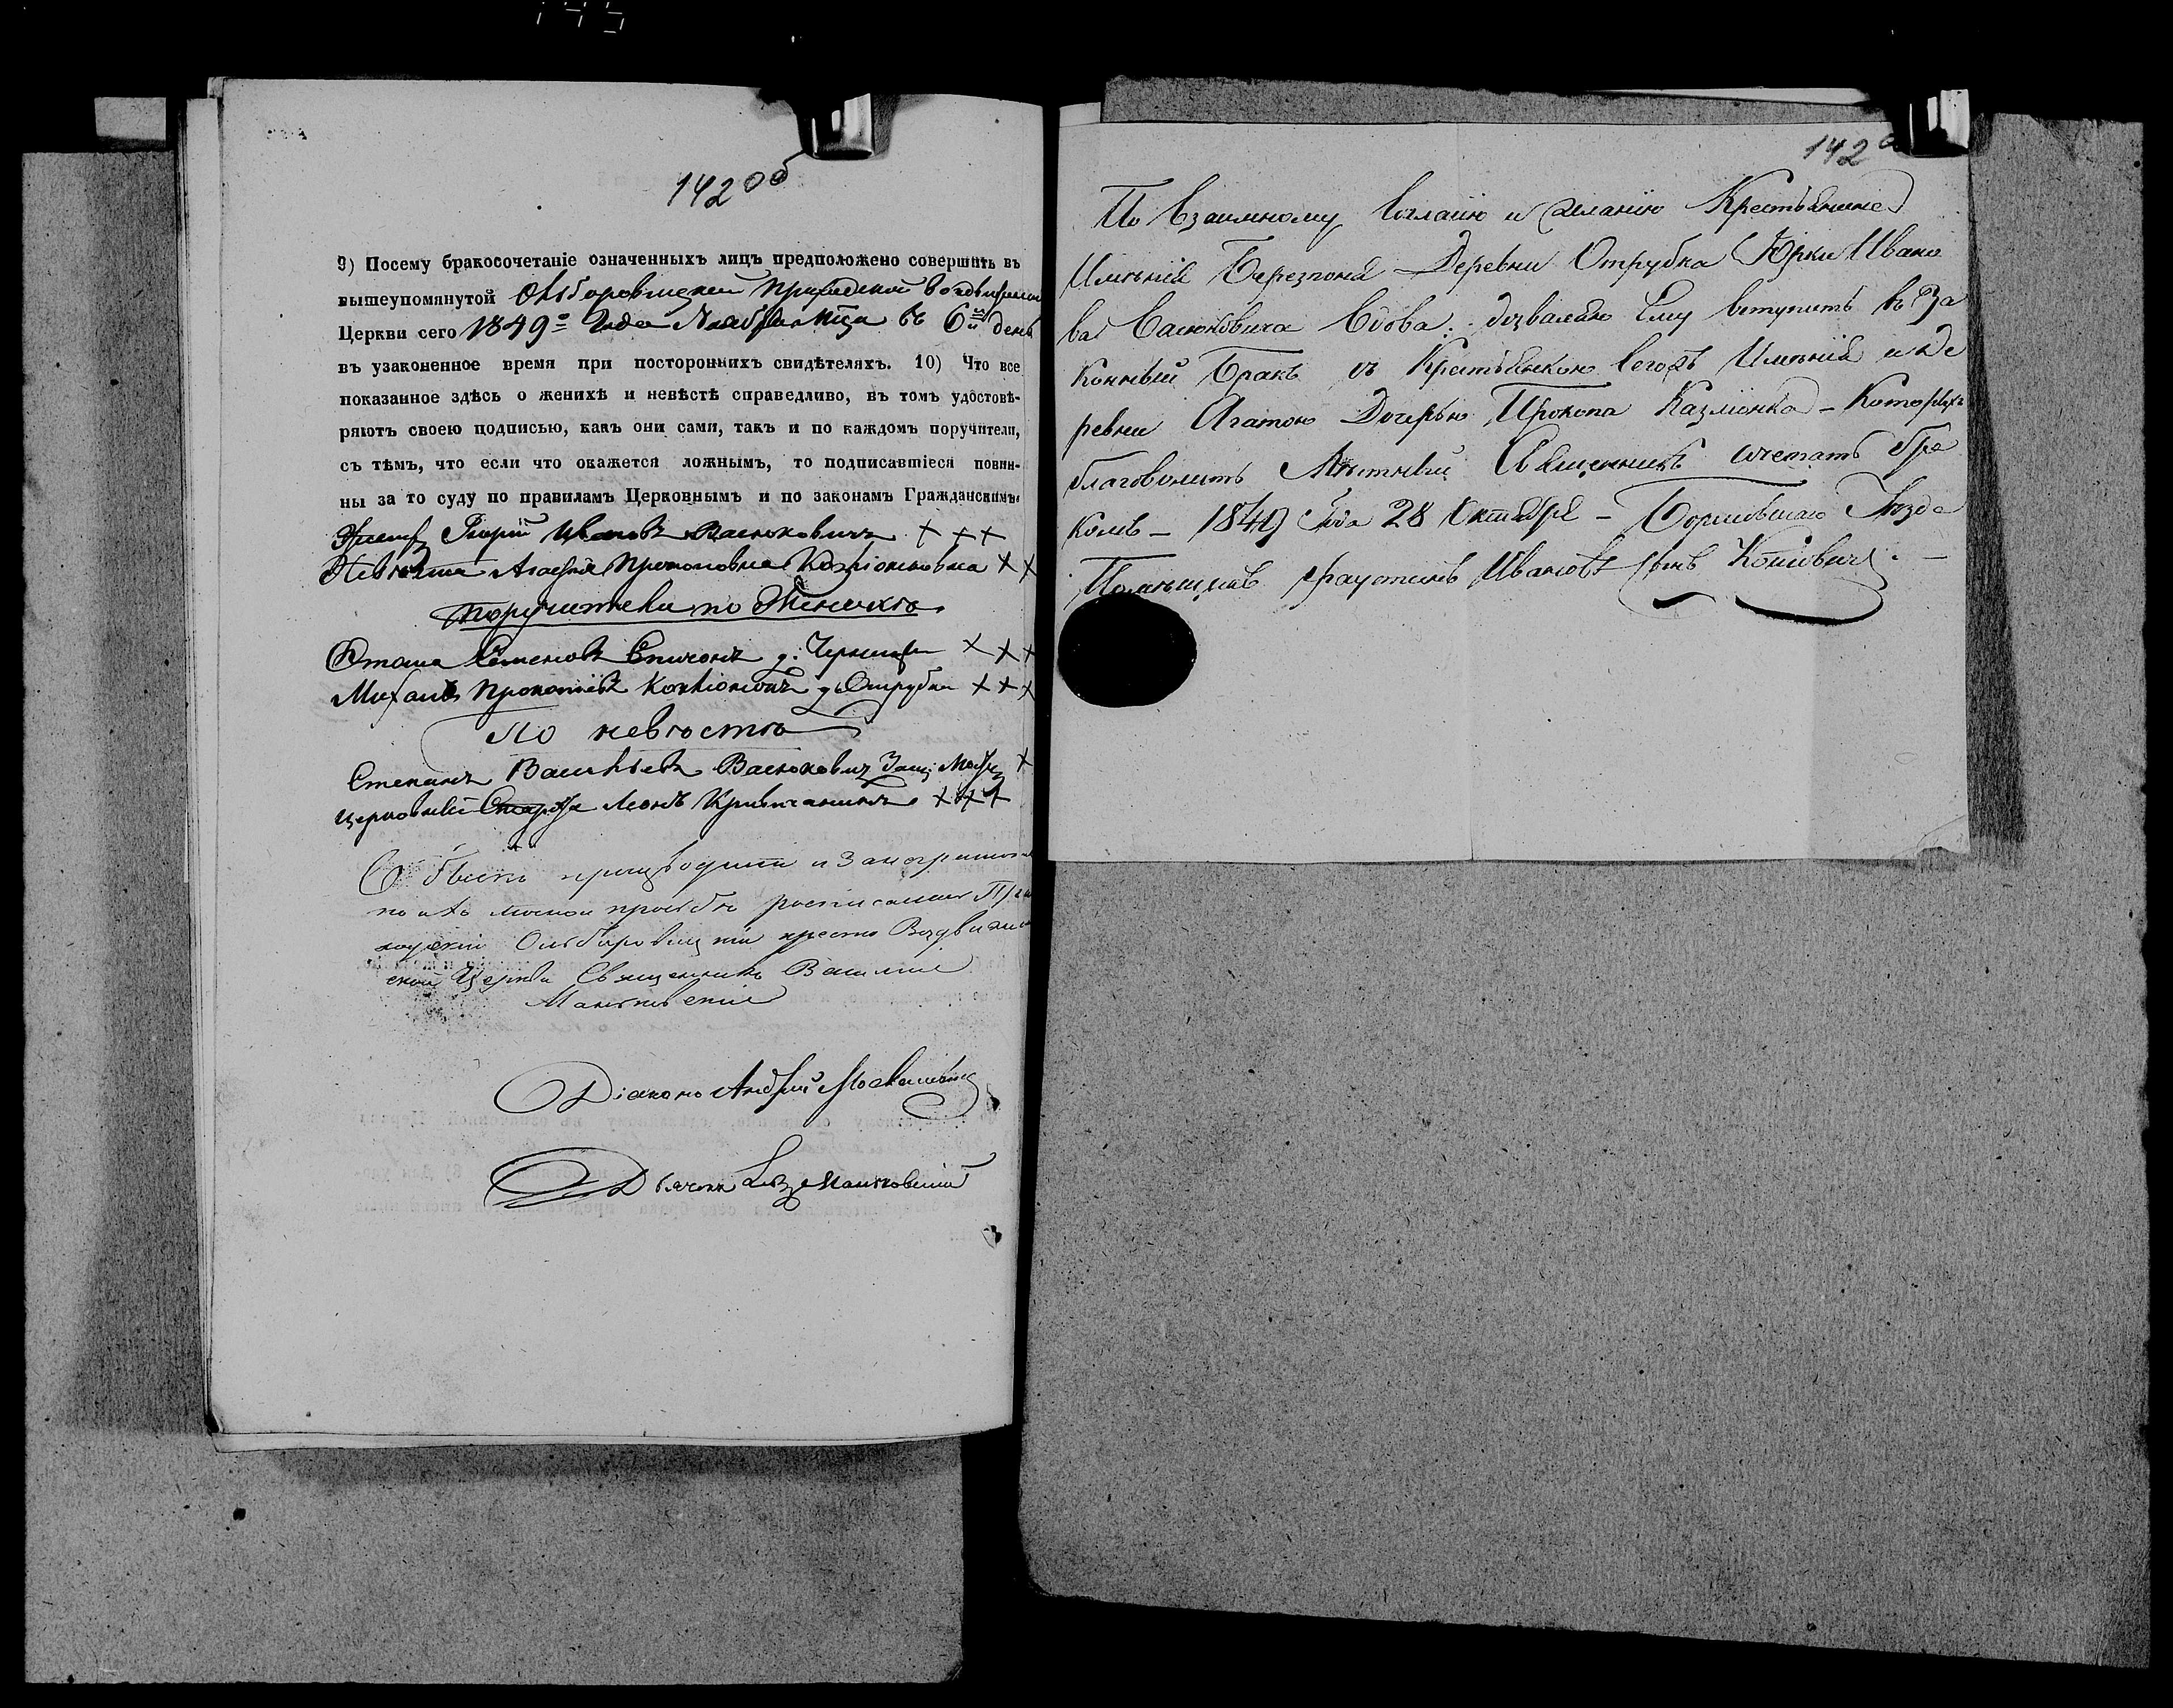 142 об
9) Посему бракосочетаніе означенныхъ лицъ предположено совершить въ
вышеупомянутой Ольборовицкой приходской воздвиженской
Церкви сего 1849º Года Ноября мца въ 6й день
въ узаконенное время при постороннихъ свидѣтеляхъ. 10) Что все
показанное здѣсь о женихѣ и невѣстѣ справедливо, въ томъ удостовѣ-
ряютъ своею подписью, какъ они сами, такъ и по каждомъ поручители,
съ тѣмъ, что если что окажется ложнымъ, то подписавшіеся повин-
ны за то суду по правиламъ Церковнымъ и по законамъ Гражданскимъ.
Женихъ Георгій Ивановъ Васюковичъ + + +
Невѣста Агафія Прокоповна Козліонковна + +
Поручители по Женихѣ
Семеновъ д. + + +
Михаилъ Прокопіевъ д. Отрубка + + +
по невѣстѣ
Степанъ Васильевъ Васюковичъ +
церковный Староста Леонъ + + +
Обыскъ производили и за неграмотн
по ихъ личной прозьбѣ росписались При
ходскій Ольборовицкій кресто Воздвижен
ской Церкви Священникъ Василій
Маньковскій
Діаконъ Андрей
Дьячокъ Маньковскій
142 а
По взаимному согласію и желанію Крестьянина
Имѣнія Березпоня Деревни Отрубка Юрки Ивано
ва Васюковича вдова. дозваляю Ему вступить въ За
конный Бракъ съ Крестьянкою сегожъ Имѣнія и де
ревни Агатою Дочерью Прокопа Казліонка – Которыхъ
благоволитъ Мѣстный Священникъ сочетать бра
комъ – 1849 Года 28 Октября –
Помѣщикъ Фаустинъ Ивановъ сынъ